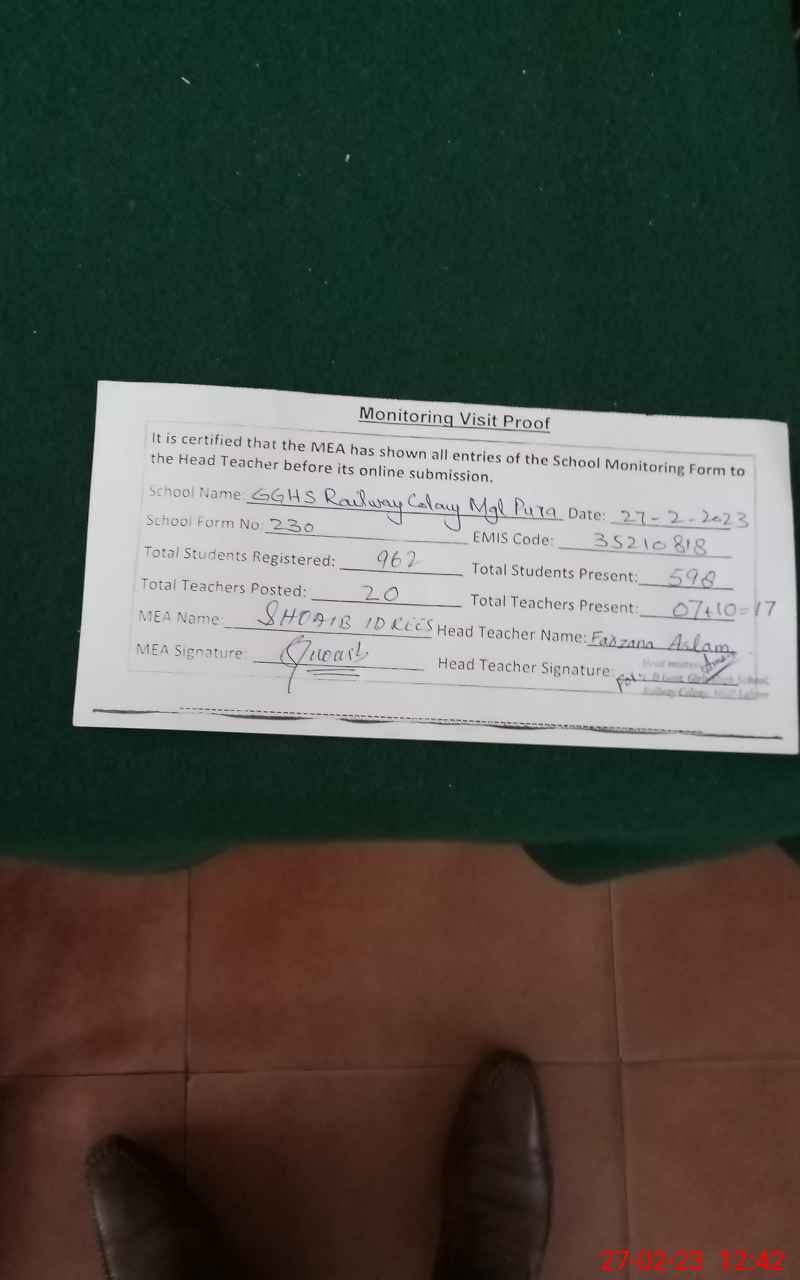 Monitoring Visit Proof
It is certified that the MEA has shown all entries of the School Monitoring Form to
the Head Teacher before its online submission.
School Name: GGHS Railway Colony Mgl Pura Date: 27-2-2023
School Form No: 230 EMIS Code: 35210818
Total Students Registered: 962 Total Students Present: 598
Total Teachers Posted: 20 Total Teachers Present: 07+10=17
MEA Name: SHOAIB IDREES Head Teacher Name: Farzana Aslam
MEA Signature: Head Teacher Signature:
Railway Colony
27-02-23 12:42